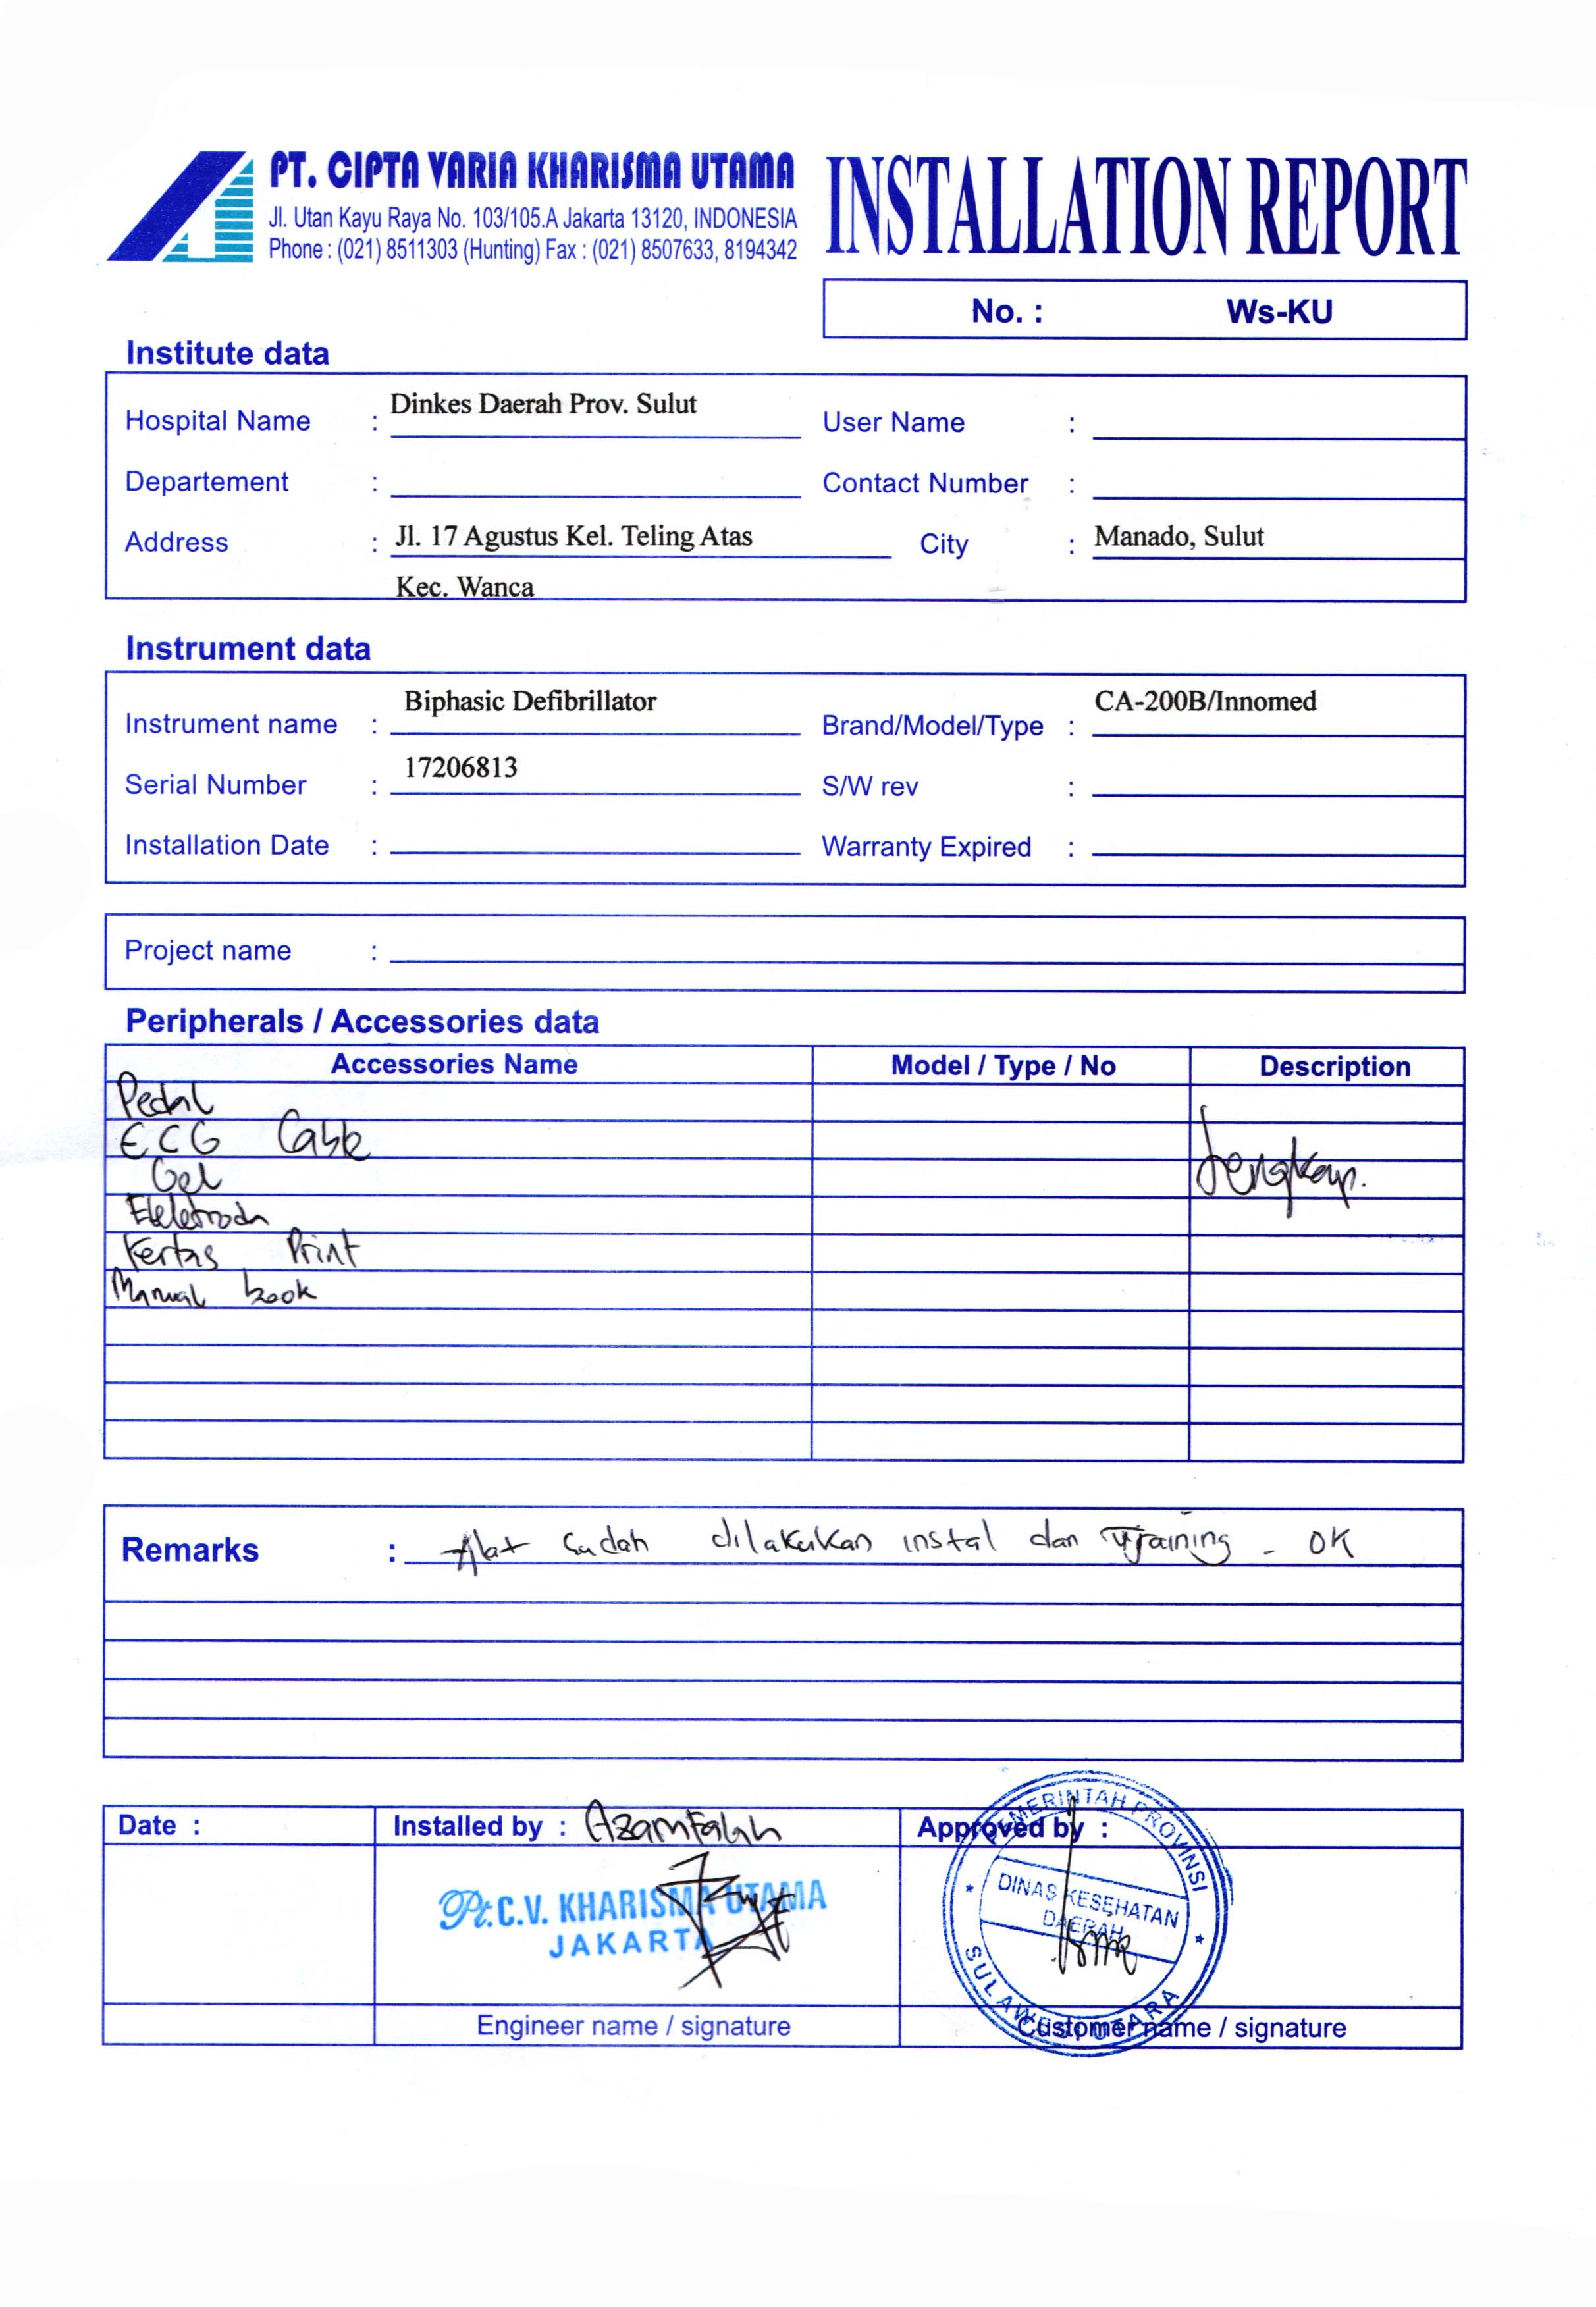 PT. CIPTA VARIA KHARISMA UTAMA
Jl. Utan Kayu Raya No. 103/105.A Jakarta 13120, INDONESIA
Phone : (021) 8511303 (Hunting) Fax : (021) 8507633, 8194342
INSTALLATION REPORT
No. : Ws-KU
Institute data
Hospital Name : Dinkes Daerah Prov. Sulut User Name :
Departement : Contact Number :
Address : Jl. 17 Agustus Kel. Teling Atas City : Manado, Sulut
Kec. Wanca
Instrument data
Instrument name : Biphasic Defibrillator Brand/Model/Type : CA-200B/Innomed
Serial Number : 17206813 S/W rev :
Installation Date : Warranty Expired :
Project name :
Peripherals / Accessories data
Accessories Name Model / Type / No Description
Pedal
ECG Cable
Gel Lengkap.
Elektroda
Kertas Print
Manual book
Remarks : Alat sudah dilakukan instal dan Training - OK
Date : Installed by : Azamfalah Approved by :
Pt. C.V. KHARISMA UTAMA
JAKARTA
PEMERINTAH PROVINSI
DINAS KESEHATAN
DAERAH
SULAWESI UTARA
Engineer name / signature Customer name / signature